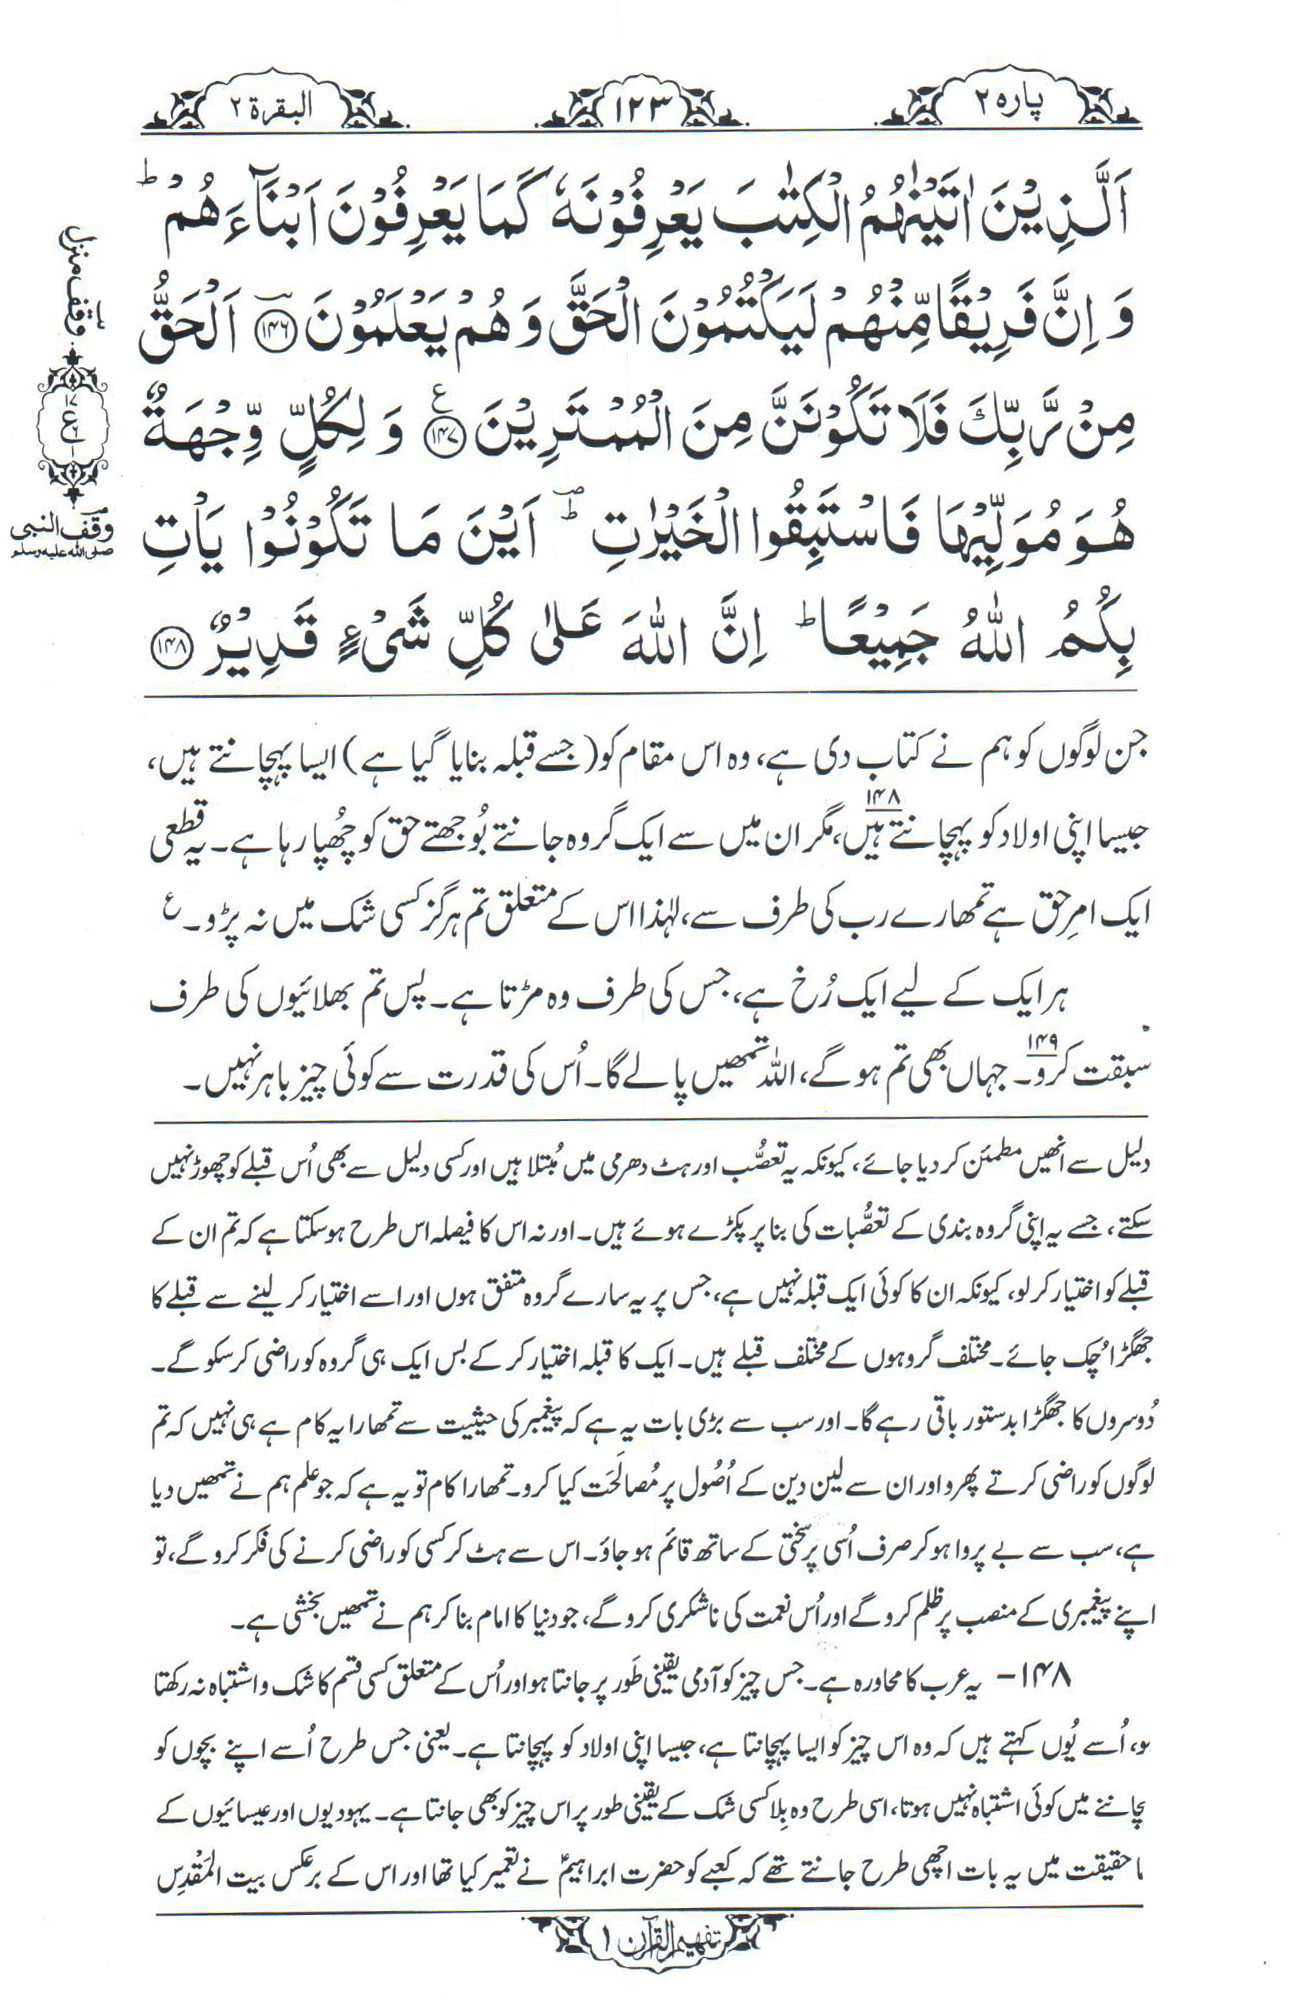 پارہ ۲
۱۲۳
البقرۃ ۲
اَلَّذِیْنَ اٰتَیْنٰهُمُ الْكِتٰبَ یَعْرِفُوْنَهٗ كَمَا یَعْرِفُوْنَ اَبْنَآءَهُمْ ؕ
وَ اِنَّ فَرِیْقًا مِّنْهُمْ لَیَكْتُمُوْنَ الْحَقَّ وَ هُمْ یَعْلَمُوْنَ ﴿۱۴۶﴾ اَلْحَقُّ
مِنْ رَّبِّكَ فَلَا تَكُوْنَنَّ مِنَ الْمُمْتَرِیْنَ ﴿۱۴۷﴾ ع وَ لِكُلٍّ وِّجْهَةٌ
هُوَ مُوَلِّیْهَا فَاسْتَبِقُوا الْخَیْرٰتِ ؕ اَیْنَ مَا تَكُوْنُوْا یَاْتِ
بِكُمُ اللّٰهُ جَمِیْعًا ؕ اِنَّ اللّٰهَ عَلٰی كُلِّ شَیْءٍ قَدِیْرٌ ﴿۱۴۸﴾
وقف منزل
۱۷
ع
۱
وقف النبی
صلی اللہ علیہ وسلم
جن لوگوں کو ہم نے کتاب دی ہے، وہ اس مقام کو (جسے قبلہ بنایا گیا ہے) ایسا پہچانتے ہیں،
جیسا اپنی اولاد کو پہچانتے ہیں۱۴۸، مگر ان میں سے ایک گروہ جانتے بُوجھتے حق کو چُھپا رہا ہے۔ یہ قطعی
ایک امرِ حق ہے تمھارے رب کی طرف سے، لہٰذا اس کے متعلق تم ہرگز کسی شک میں نہ پڑو۔ ع
ہر ایک کے لیے ایک رُخ ہے، جس کی طرف وہ مڑتا ہے۔ پس تم بھلائیوں کی طرف
سبقت کرو۱۴۹۔ جہاں بھی تم ہو گے، اللہ تمھیں پا لے گا۔ اُس کی قدرت سے کوئی چیز باہر نہیں۔
دلیل سے انھیں مطمئن کر دیا جائے، کیونکہ یہ تعصُّب اور ہٹ دھرمی میں مُبتلا ہیں اور کسی دلیل سے بھی اُس قبلے کو چھوڑ نہیں
سکتے، جسے یہ اپنی گروہ بندی کے تعصُّبات کی بنا پر پکڑے ہوئے ہیں۔ اور نہ اس کا فیصلہ اس طرح ہو سکتا ہے کہ تم ان کے
قبلے کو اختیار کر لو، کیونکہ ان کا کوئی ایک قبلہ نہیں ہے، جس پر یہ سارے گروہ متفق ہوں اور اسے اختیار کر لینے سے قبلے کا
جھگڑا چُک جائے۔ مختلف گروہوں کے مختلف قبلے ہیں۔ ایک کا قبلہ اختیار کر کے بس ایک ہی گروہ کو راضی کر سکو گے۔
دُوسروں کا جھگڑا بدستور باقی رہے گا۔ اور سب سے بڑی بات یہ ہے کہ پیغمبر کی حیثیت سے تمھارا یہ کام ہے ہی نہیں کہ تم
لوگوں کو راضی کرتے پھرو اور ان سے لین دین کے اُصُول پر مُصالَحَت کیا کرو۔ تمھارا کام تو یہ ہے کہ جو علم ہم نے تمھیں دیا
ہے، سب سے بے پروا ہو کر صرف اُسی پر سختی کے ساتھ قائم ہو جاؤ۔ اس سے ہٹ کر کسی کو راضی کرنے کی فکر کرو گے، تو
اپنے پیغمبری کے منصب پر ظلم کرو گے اور اُس نعمت کی ناشکری کرو گے، جو دنیا کا امام بنا کر ہم نے تمھیں بخشی ہے۔
۱۴۸- یہ عرب کا محاورہ ہے۔ جس چیز کو آدمی یقینی طَور پر جانتا ہو اور اُس کے متعلق کسی قسم کا شک و اشتباہ نہ رکھتا
ہو، اُسے یُوں کہتے ہیں کہ وہ اس چیز کو ایسا پہچانتا ہے، جیسا اپنی اولاد کو پہچانتا ہے۔ یعنی جس طرح اُسے اپنے بچوں کو
چاننے میں کوئی اشتباہ نہیں ہوتا، اسی طرح وہ بِلا کسی شک کے یقینی طور پر اس چیز کو بھی جانتا ہے۔ یہودیوں اور عیسائیوں کے
ا حقیقت میں یہ بات اچھی طرح جانتے تھے کہ کعبے کو حضرت ابراہیمؑ نے تعمیر کیا تھا اور اس کے برعکس بیت المَقْدِس
تفہیم القرآن ۱